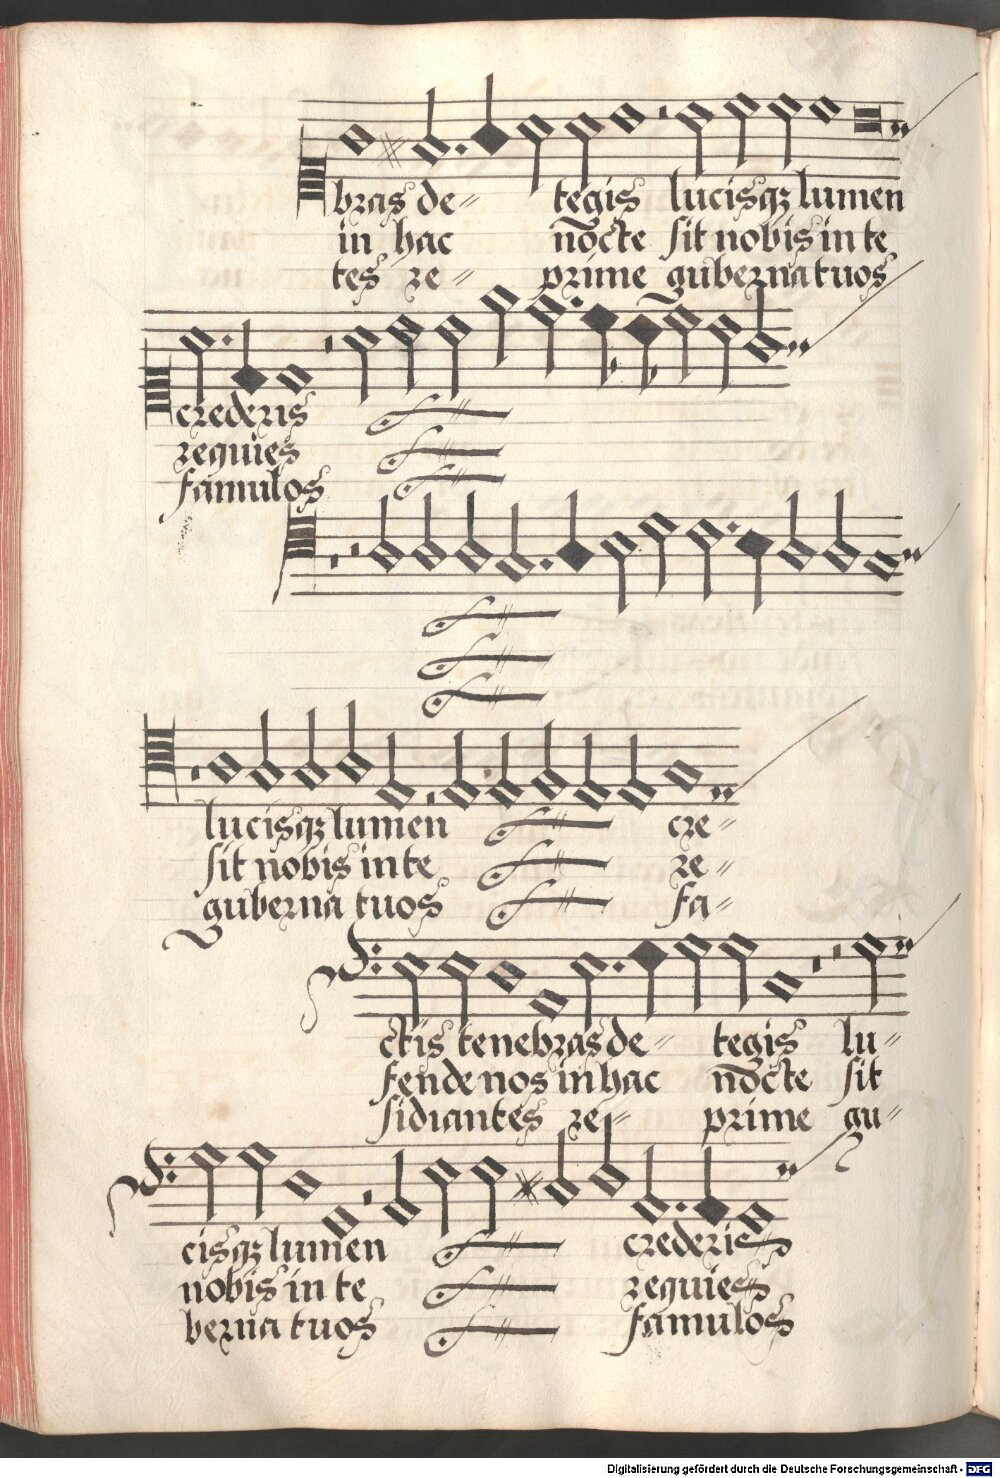 bras de〃 tegis lucisqꝫ lumen
in hac nocte sit nobis in te
tes re〃 prime guberna tuos
crederis
requies
famulos
lucisqꝫ lumen cre〃
sit nobis in te re〃
guberna tuos fa〃
ctis tenebras de〃 tegis lu〃
fende nos in hac nocte sit
sidiantes re〃 prime gu〃
cisqꝫ lumen crederis
nobis in te requies
berna tuos famulos
Digitalisierung gefördert durch die Deutsche Forschungsgemeinschaft - DFG